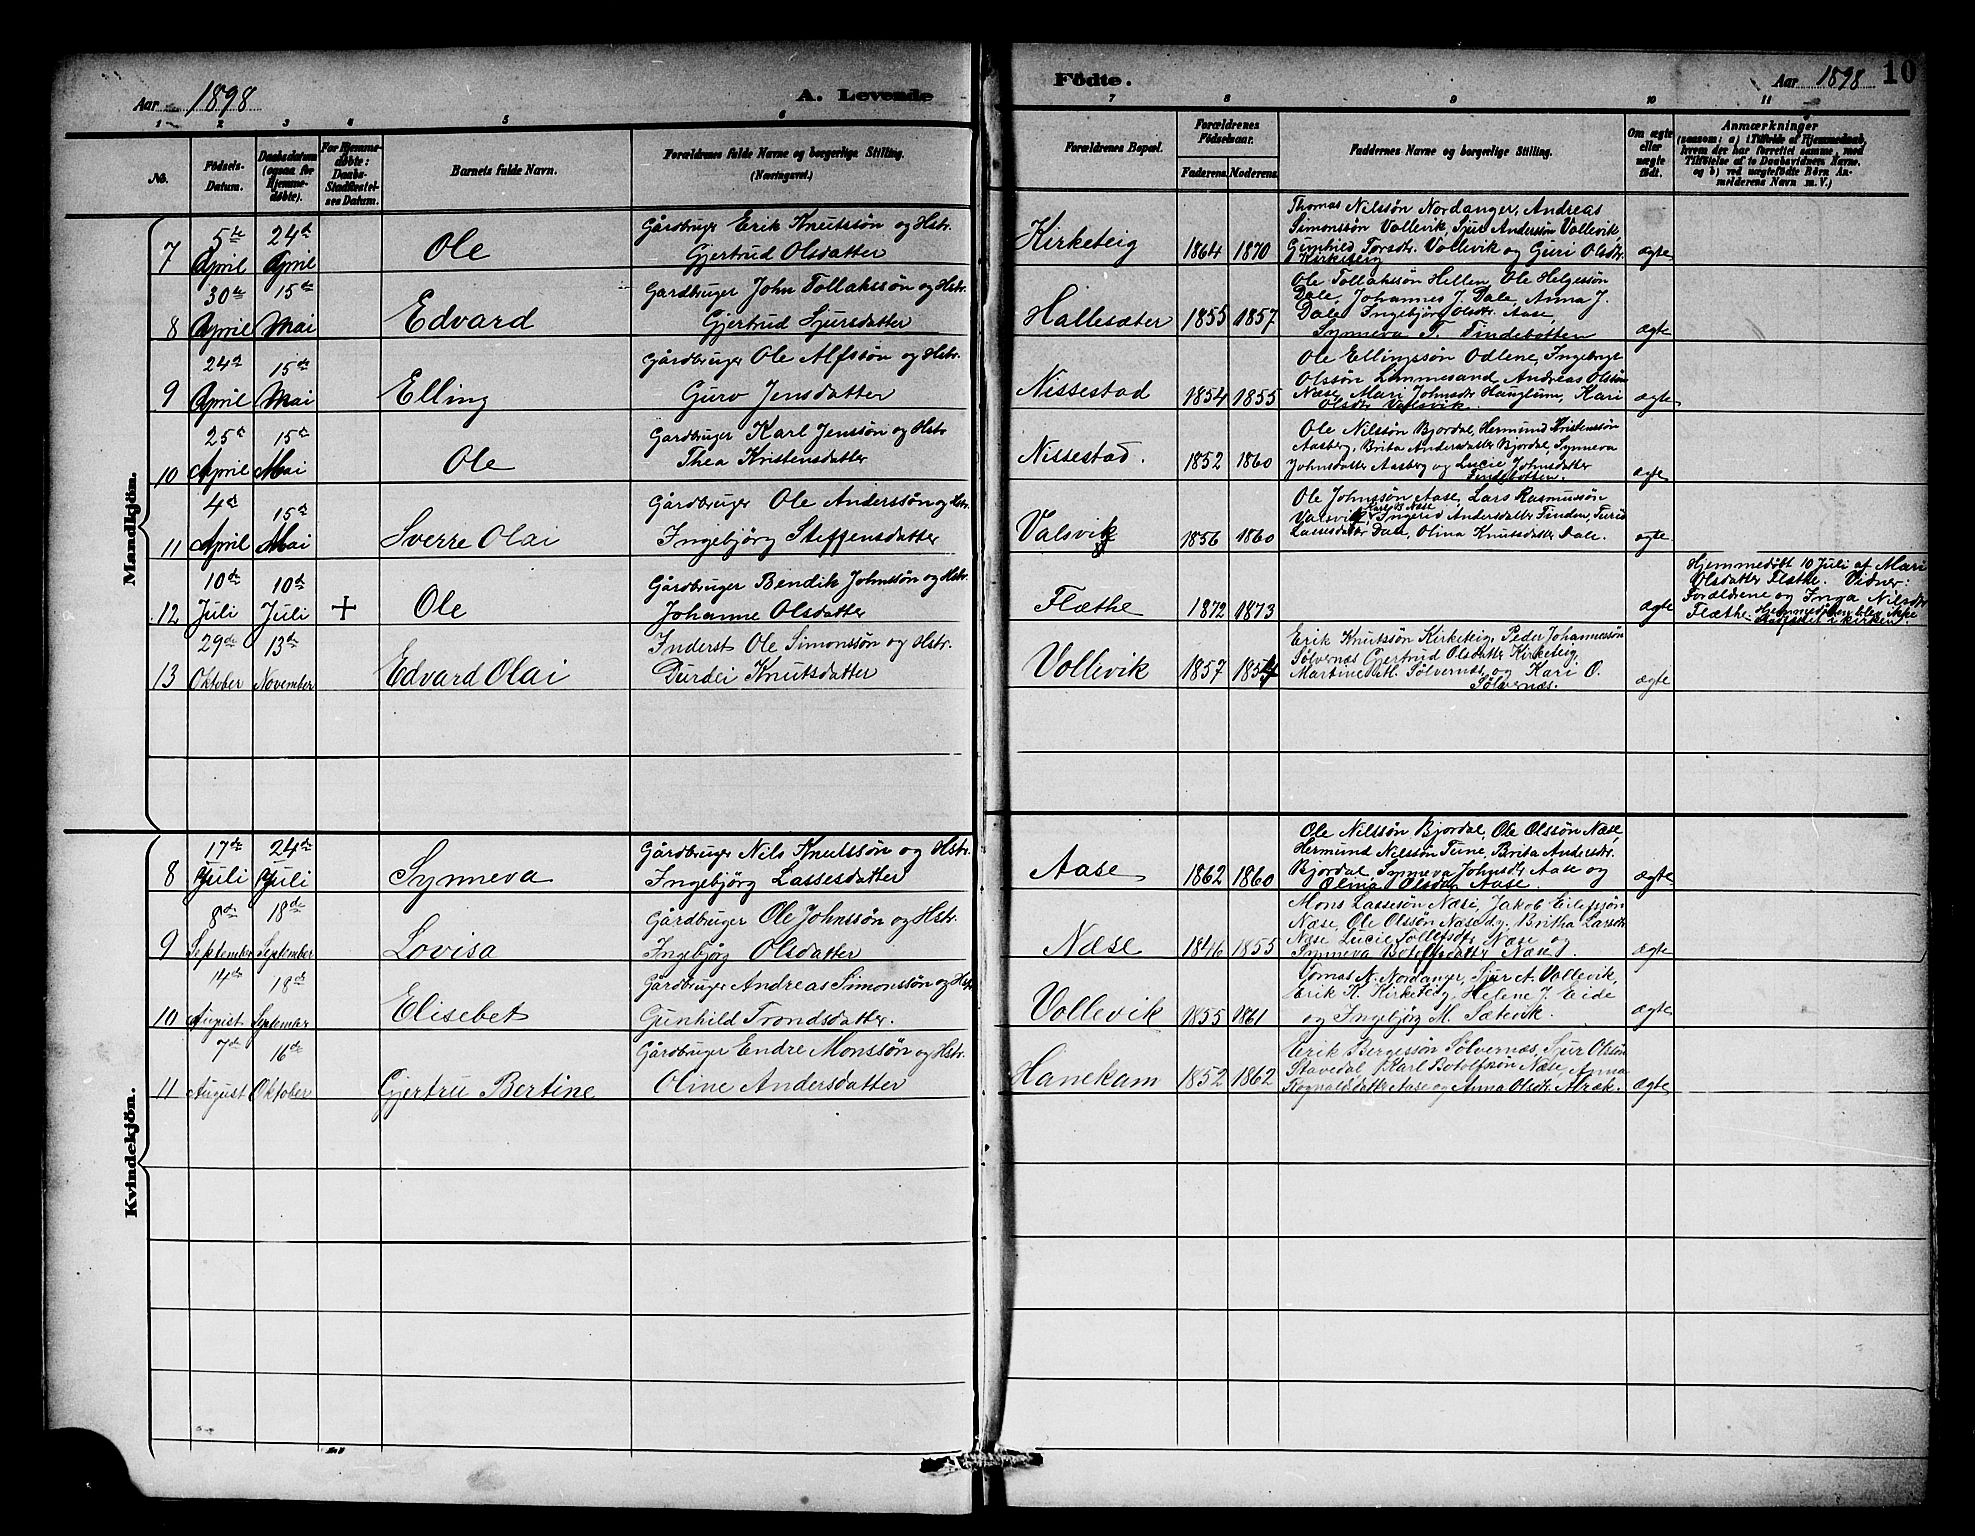 Aar 1898
A. Levende
Födte.
Aar 1898
10
1 2 3 4 5 6 7 8 9 10 11
No.
Födsels-
Datum.
Daabsdatum
(ogsaa for
Hjemme-
døbte).
For Hjemme-
døbte:
Daabs-
Stadfæstel-
ses Datum.
Barnets fulde Navn.
Forældrenes fulde Navne og borgerlige Stilling.
(Næringsvei.)
Forældrenes Bopæl.
Forældrenes
Födselsaar.
Faderens. Moderens.
Faddernes Navne og borgerlige Stilling.
Om ægte
eller
uægte
födt.
Anmærkninger
(saasom: a) i Tilfælde af Hjemmedaab,
hvem der har forrettet samme, med
Tilföielse af to Daabsvidners Navne.
og b) ved uægtefödte Börn An-
melderens Navn m. V.)
Mandkjön.
7
5te April
24d April
Ole
Gårdbruger Erik Knutssön og Hstr.
Gjertrud Olsdatter
Kirketeig
1864 1870
Thomas Nilssön Nordanger, Andreas
Simonssön Vollevik, Sjur Anderssön Vollevik
Gunhild Torsdtr. Vollevik og Guri Olsdtr.
Kirketeig
ægte
8
30te April
15de Mai
Edvard
Gardbruger John Tollakssön og Hstr.
Gjertrud Sjursdatter
Hallesæter
1855 1857
Ole Tollakssön Hellen, Ole Helgesön
Dale, Johannes J. Dale, Anna J.
Dale, Ingebjörg Olsdtr. Aase,
Synneva T. Findebotten
ægte
9
24d April
15de Mai
Elling
Gårdbruger Ole Alfssön og Hstr.
Guro Jensdatter
Nissestad
1854 1855
Ole Ellingssön Odlene, Ingebrigt
Olssön Limmesand, Andreas Olssön
Næse, Mari Johnsdtr Hauglum, Kari
Olsdtr Valsvik.
ægte
10
25d April
15d Mai
Ole
Gardbruger Karl Jenssön og Hstr
Thea Kristensdatter
Nissestad.
1852 1860
Ole Nilssön Bjordal, Hermund Kristenssön
Aasberg, Brita Andersdatter Bjordal, Synneva
Johnsdatter Aasberg og Lucie Johnsdatter
Findebotten.
ægte
11
4d April
15d Mai
Sverre Olai
Gårdbruger Ole Anderssön og Hstr.
Ingebjörg Steffensdatter
Valsvik
1856 1860
Ole Johnssön Aase, Lars Rasmussön
Karl B. Næse
Valsvik, Ingerid Andersdatter Finden, Turid
Lassesdatter Dale, Olina Knutsdatter Dale.
ægte
12
10de Juli
10d Juli
+
Ole
Gårdbruger Bendik Johnssön og Hstr.
Johanne Olsdatter
Flæthe
1872 1873
ægte
Hjemmedöbt 10 Juli af Mari
Olsdatter Flæthe. Vidner:
Forældrene og Inga Nilsdtr
Flæthe. Hjemmedåben blev ikke
stadfæstet i kirken.
13
29de Oktober
13de November
Edvard Olai
Inderst Ole Simonssön og Hstr.
Durdei Knutsdatter
Vollevik
1857 1854
Erik Knutssön Kirketeig, Peder Johannessön
Sølvernæs Gjertrud Olsdatter Kirketeig,
Martine Sølvernæs og Kari O.
Sølvernæs.
ægte
Kvindekjön.
8
17de Juli
24de Juli
Synneva
Gårdbruger Nils Knutssön og Hstr.
Ingebjörg Lassesdatter
Aase
1862 1860
Ole Nilssön Bjordal, Ole Olssön Næse,
Hermund Nilssön Tune, Brita Andersdtr.
Bjordal, Synneva Johnsdtr Aase og
Olina Olsdtr Aase.
ægte
9
8de September
18de September
Lovisa
Gårdbruger Ole Johnssön og Hstr.
Ingebjörg Olsdatter
Næse
1846 1855
Mons Lassesön Næse, Jakob
Næse, Ole Olssön Næse, Britha Larsdtr
Næse Lucie Næse og
Synneva Botolfsdatter Næse.
ægte
10
14de August
18de September
Elisebet
Gårdbruger Andreas Simonssön og Hstr
Gunhild Trondsdatter.
Vollevik
1855 1861
Tomas N. Nordanger, Sjur A. Vollevik,
Erik K. Kirketeig, Helene J. Eide
og Ingebjörg M. Sætevik.
ægte
11
7de August
16de Oktober
Gjertru Bertine
Gårdbruger Endre Monssön og Hstr.
Oline Andersdatter
Hanekam
1852 1862
Erik Bergessön Sølvernæs, Sjur Olssön
Stavedal, Karl Botolfssön Næse, Anna
Rognaldsdatter Aase og Anna Olsdtr. Alræk.
ægte